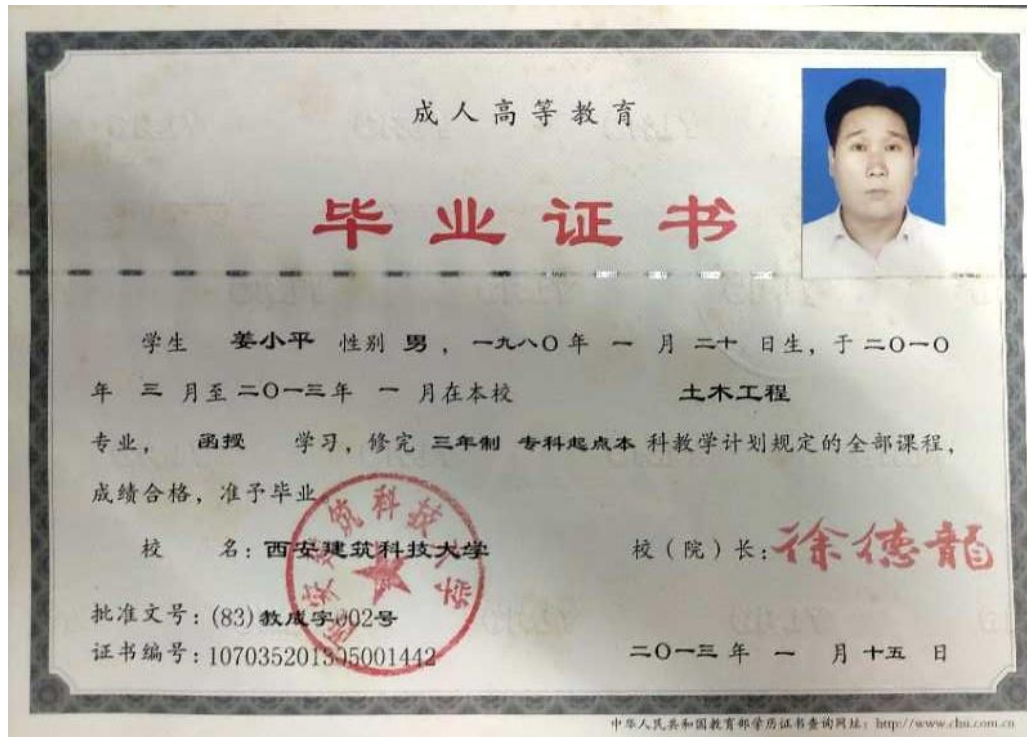 成人高等教育
毕业证书
学生 姜小平 性别 男，一九八〇年 一 月 二十 日生，于 二〇一〇
年 三 月至 二〇一三年 一 月在本校 土木工程
专业， 函授 学习，修完 三年制 专科起点本 科教学计划规定的全部课程，
成绩合格，准予毕业
校 名：西安建筑科技大学 校（院）长：徐德龍
批准文号：(83)教成字002号
证书编号：107035201305001442 二〇一三 年 一 月 十五 日
西安建筑科技大学
中华人民共和国教育部学历证书查询网址：http://www.chsi.com.cn